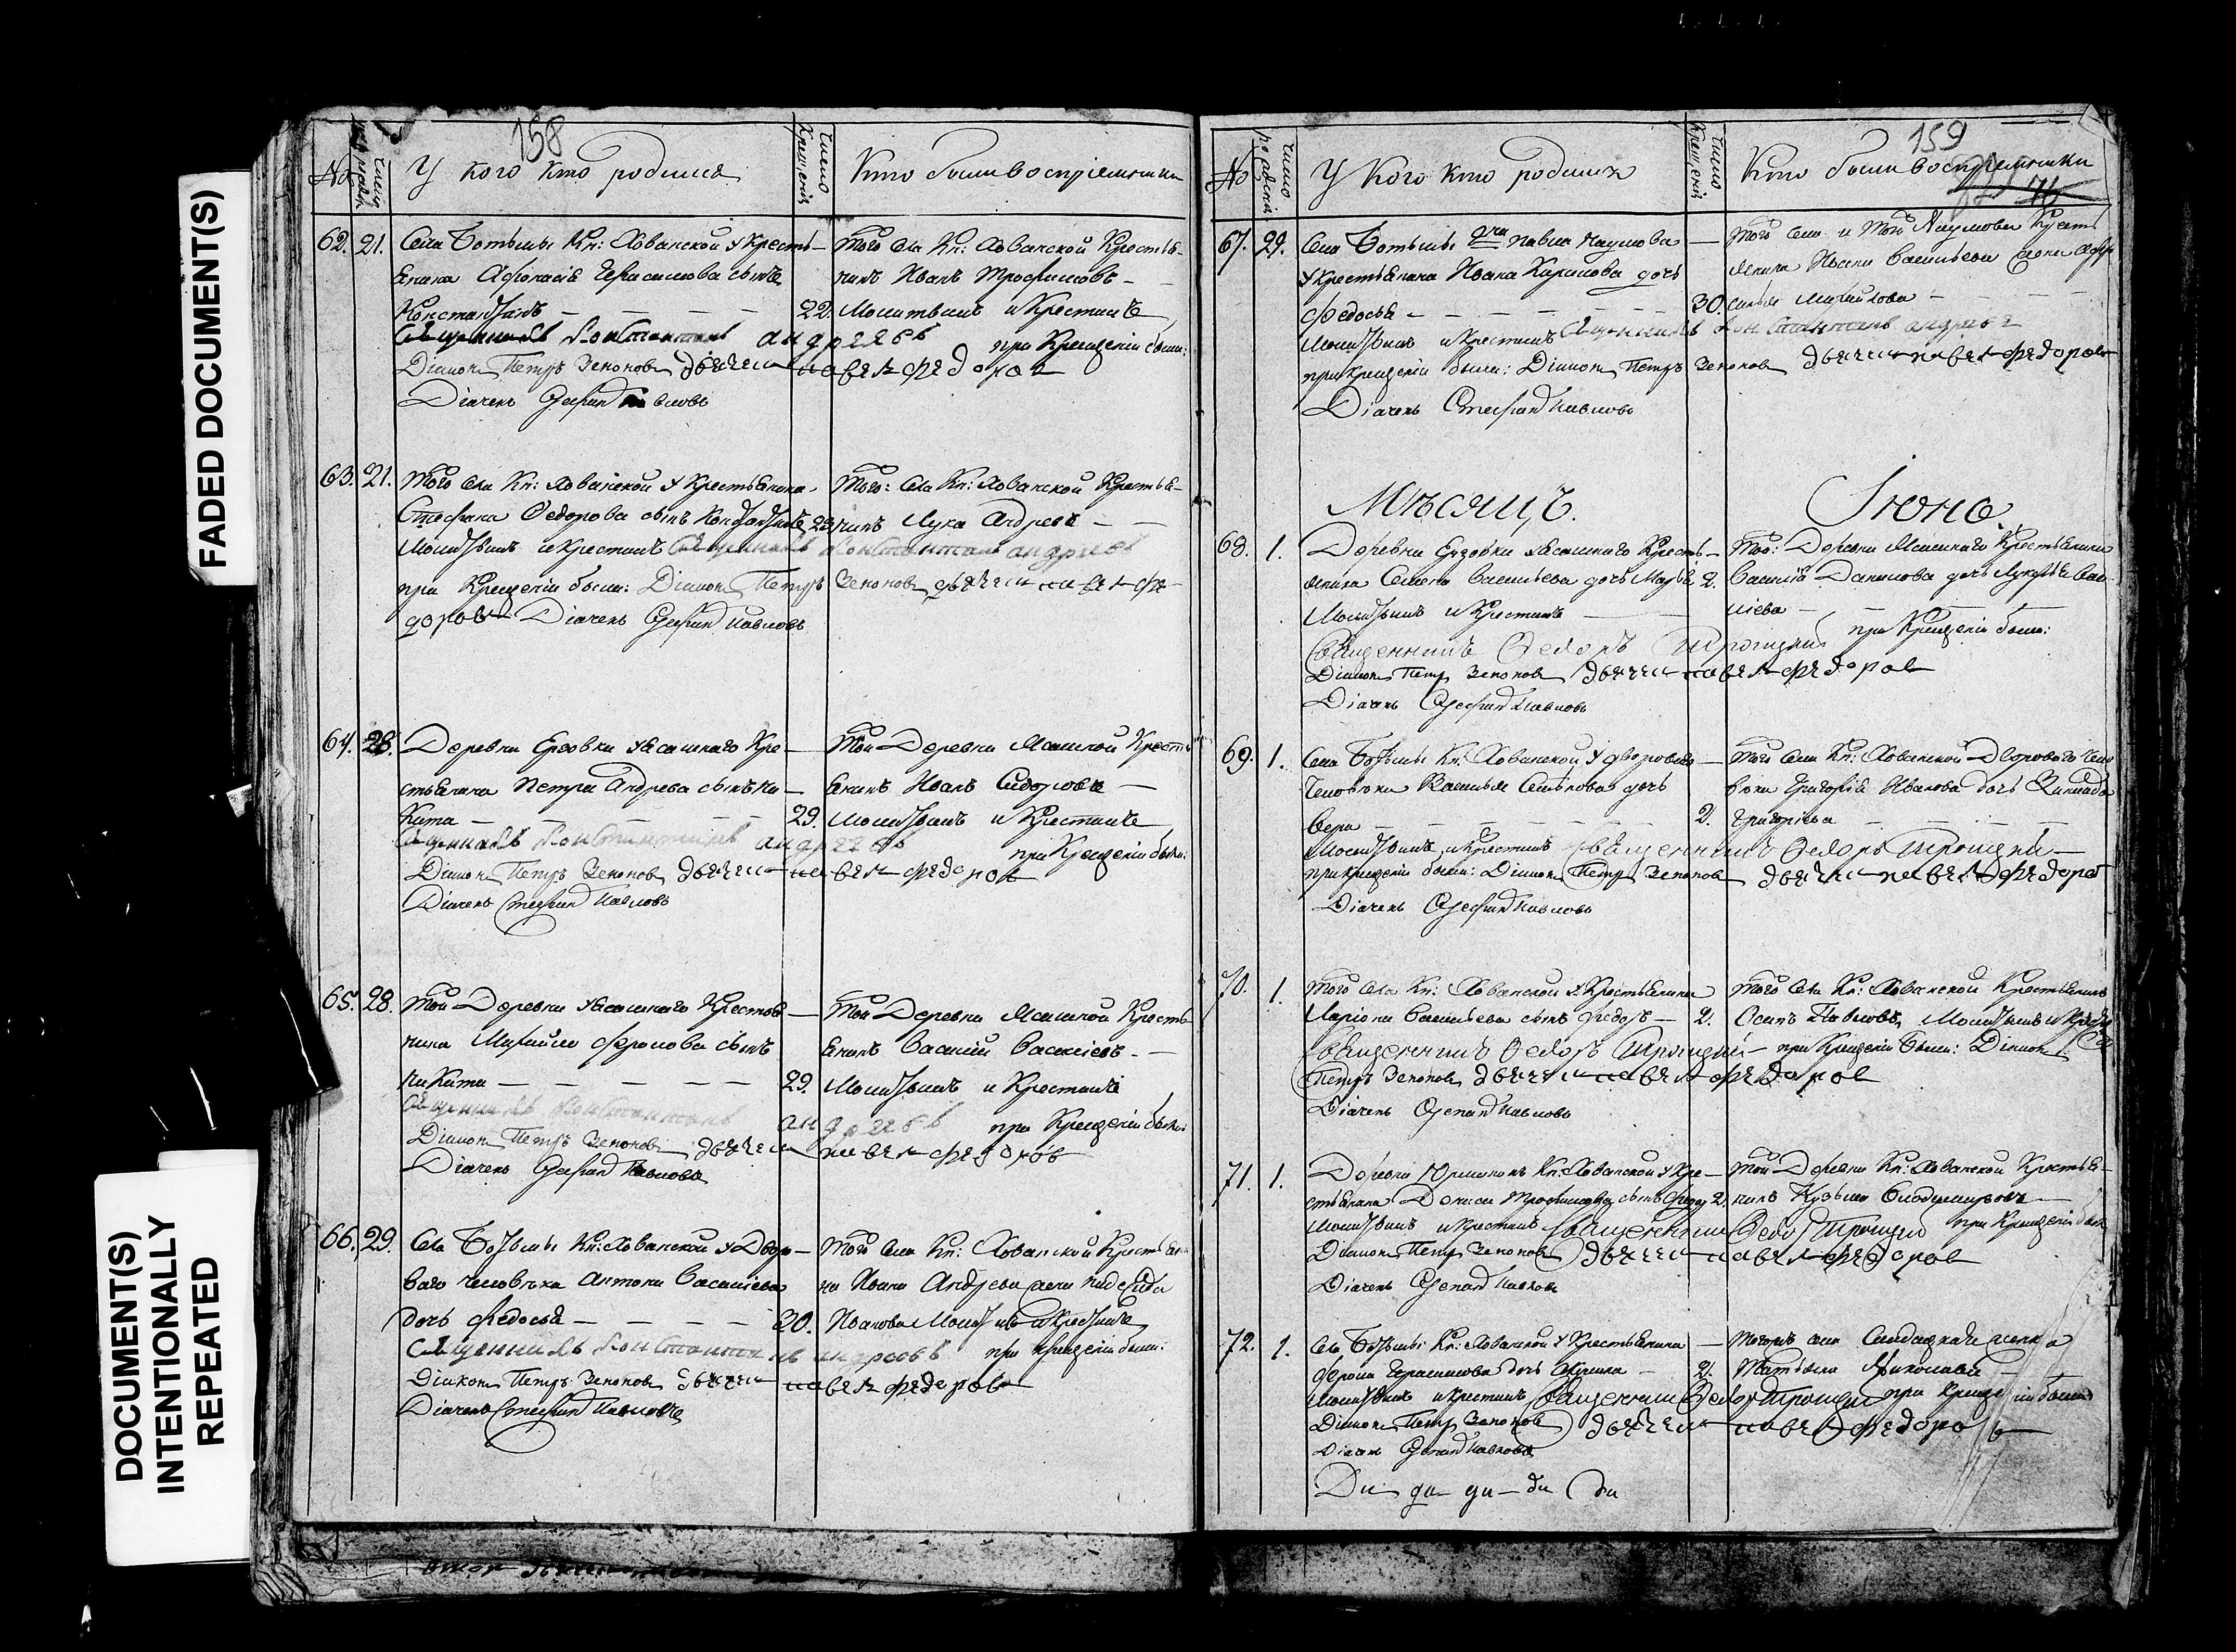 FADED DOCUMENT(S)
DOCUMENT(S)
INTENTIONALLY
REPEATED
158
№
Число
У кого кто родился
Число
Крещенія
Кто были воспріемники
62. 21. Села Ботьмы Кн: Хованской у кресть-
янина Афонасія Герасимова сынъ
Священникъ Константинъ андреевъ
Діаконъ Петръ Зеноновъ дьячекъ павелъ федоров
Діачекъ Стефанъ Павловъ
Того села Кн: Хованской Крестья-
нинъ Иванъ Трофимовъ
22. Молитвилъ и Крестилъ
при Крещеніи были:
63. 21. Того села Кн: Хованской у Крестьянина
Стефана Федорова сынъ
Молитвилъ и крестилъ Священникъ Константинъ андреевъ
при Крещеніи были: Діаконъ Петръ Зеноновъ дьячекъ павел фе-
доровъ Діачекъ Стефанъ Павловъ
Того: села Кн: Хованской Крестья-
нинъ Лука Андреевъ
64. 28. Деревни Ерзовки у Ясашнаго Кре-
стьянина Петра Андреева сынъ Ни-
кита
Священникъ Константинъ андреевъ
Діаконъ Петръ Зеноновъ дьячекъ павел федоров
Діачекъ Стефанъ Павловъ
Той Деревни Ясашной Кресть
янинъ Иванъ Сидоровъ
29. Молитвилъ и Крестилъ
при Крещеніи были:
65. 28. Той Деревни у Ясашнаго Крестья-
нина Михайла Фролова сынъ
Никита
Священникъ Константинъ андреевъ
Діаконъ Петръ Зеноновъ дьячекъ павел федоров
Діачекъ Стефанъ Павловъ
Той Деревни Ясашной Кресть-
янинъ Василій Васильевъ
29. Молитвилъ и Крестилъ
при Крещеніи были:
66. 29. Села Ботьмы Кн: Хованской у Дворо-
ваго человѣка Антона Васильева
дочь Федосья
Священникъ Константинъ андреевъ
Діаконъ Петръ Зеноновъ дьячекъ павел федоров
Діачекъ Стефанъ Павловъ
Того села Кн: Хованской Крестьяни
на Ивана Андреева жена
30. Иванова Молитвилъ и Крестилъ
при крещеніи были:
159
№
Число
У кого кто родился
Число
Крещенія
Кто были воспріемники
67. 29. Села Ботьмы Павла Наумова
у крестьянина Ивана дочь
Федосья
Молитвилъ и крестилъ Священникъ Константинъ андреев
при крещеніи были: Діаконъ Петръ Зеноновъ дьячекъ павел федоров
Діачекъ Стефанъ Павловъ
Того села и той Наумовой Кресть
янина Ивана Васильева жена
30. Михайлова
Мѣсяцъ. Іюнь.
68. 1. Деревни Ерзовки у Ясашнаго Кресть-
янина Семена Васильева дочь Марья
Молитвилъ и Крестилъ
Священникъ Федоръ Троицкій при Крещеніи были:
Діаконъ Петръ Зеноновъ дьячекъ павел федоров
Діачекъ Стефанъ Павловъ
Той: Деревни Ясашнаго Крестьянина
2. Василія Данилова дочь Лукерья Васи-
лиева
69. 1. Села Ботьмы Кн: Хованской у двороваго
Человѣка дочь
Вера
Молитвилъ и крестилъ Священникъ Федоръ Троицкій
при крещеніи были: Діаконъ Петръ Зеноновъ дьячекъ павел федоров
Діачекъ Стефанъ Павловъ
Того села Кн: Хованской Двороваго чело
века Григорія Иванова дочь
2. Григорьева
70. 1. Того села Кн: Хованской у Крестьянина
Ларіона Васильева сынъ Федоръ
Священникъ Федоръ Троицкій при Крещеніи были: Діаконъ
Петръ Зеноновъ дьячекъ павел федоров
Діачекъ Степанъ Павловъ
Того села Кн: Хованской Крестьянинъ
2. Осипъ Павловъ. Молитвилъ и Крестил
71. 1. Деревни Кн: Хованской у Кре-
стьянина Дениса Трофимова сынъ
Молитвилъ и крестилъ Священникъ Федоръ Троицкій при Крещеніи были
Діаконъ Петръ Зеноновъ дьячекъ павел федоров
Діачекъ Степанъ Павловъ
Той Деревни Кн: Хованской Крестья-
2. нинъ Кузьма
72. 1. Села Ботьмы Кн: Хованской у Крестьянина
Фрола Герасимова дочь
Молитвилъ и крестилъ Священникъ Федоръ Троицкій при крещеніи были
Діаконъ Петръ Зеноновъ дьячекъ павел федоров
Діачекъ Степанъ Павловъ
села Салдатская женка
2. Татьяна